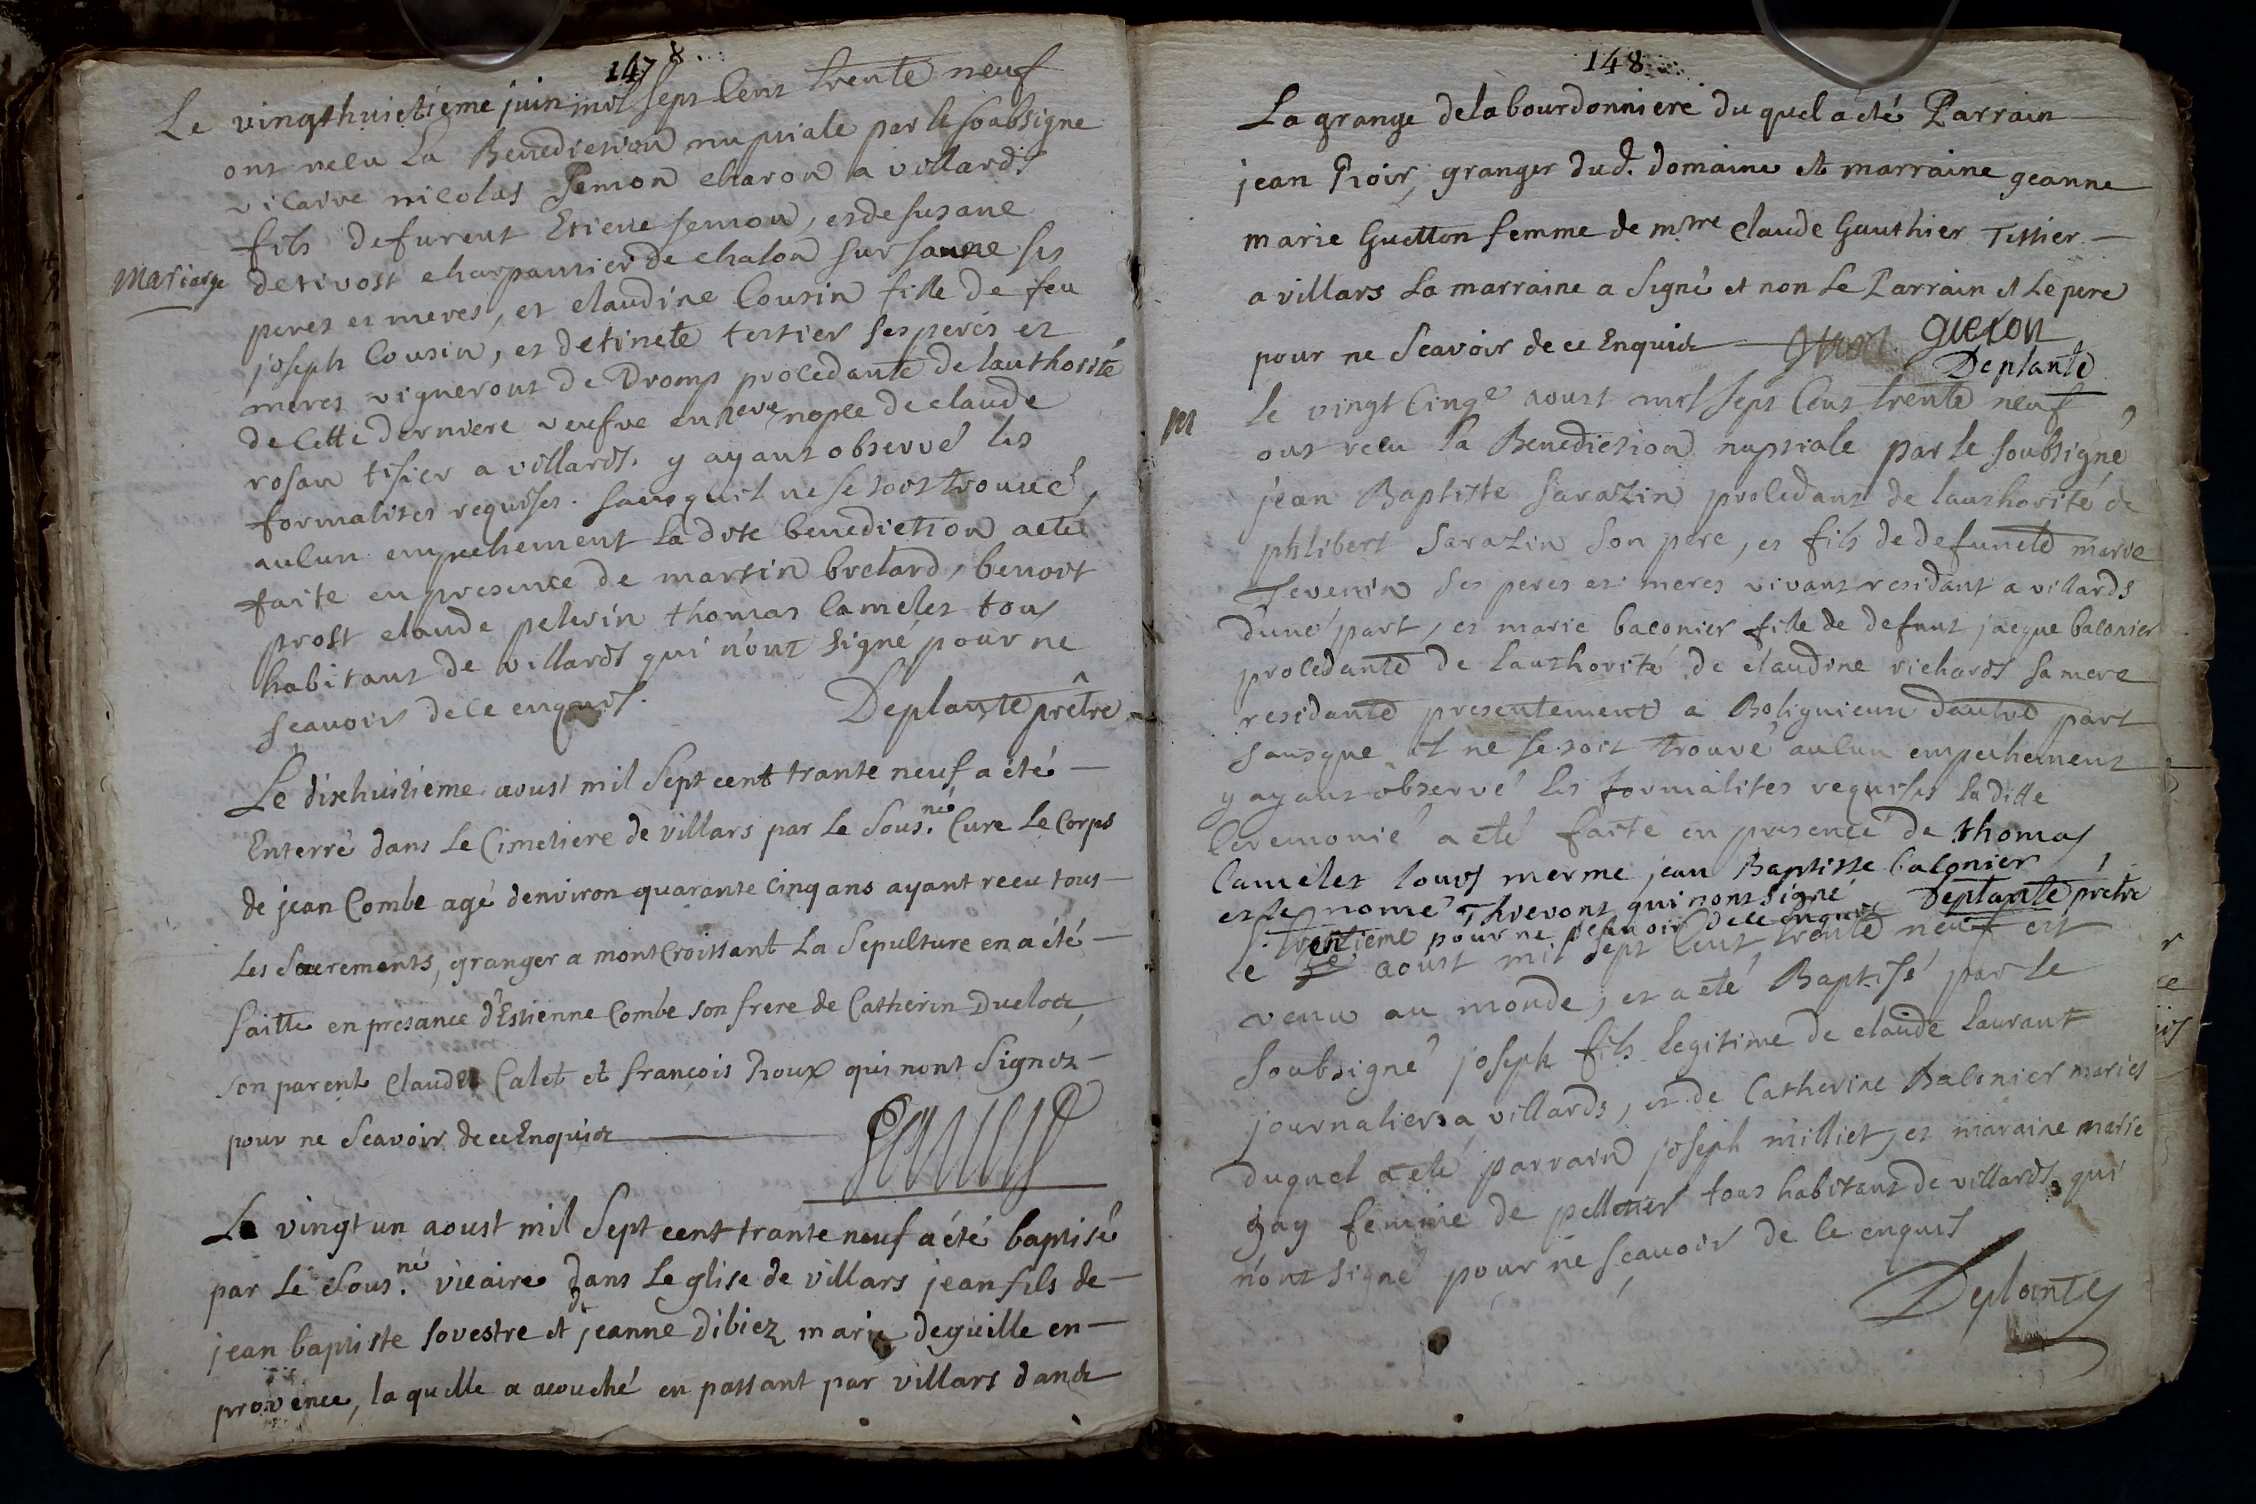 147 8
Le vingthuictieme juin mil sept cent trente neuf
ont receu la Benediction nuptiale par le soubsigne
vicaire nicolas Semon charon a villards
fils de furent Etiene semon, et de susane
Mariage
detivost charpantier de chalon sur saune ses
peres et meres, et claudine Cousin fille de feu
joseph Cousin, et definete tertier ses peres et
meres vignerons de Dromp procedante de lauthorité
de cette derniere veufve en nopce de claude
rosan tisier a villards. y ayant observé les
formalites requises. sans quil ne se soit trouué
aucun empechement la dite benediction a eté
faite en presence de martin brelard, benoit
prost claude pelerin thomas Cameles tous
habitans de villards qui n'ont signé pour ne
scauoir de ce enquis.
Deplante prêtre
Le dixhuitieme aoust mil sept cent trante neuf a été
Enterré dans le Cimetiere de villars par le sous.né Cure le Corps
de jean Combe agé denviron quarante Cinq ans ayant receu tous
les Sacrements, granger a montCroissant La Sepulture en a été
faitte en presance d'Estienne Combe son frere de Catherin Duclos,
son parent Claude Calet et françois Roux qui nont Signez
pour ne Scavoir de ce Enquis
Le vingt un aoust mil Sept cent trante neuf a été baptisé
par Le Sous.né vicaire dans Leglise de villars jean fils de
jean baptiste sovestre et jeanne dibiez marie deguille en
provence, la quelle a acouché en passant par villars dans
148
La grange delabourdonniere du quel a été Parrain
jean Roir, granger dud. domaine et marraine jeanne
marie Guetton femme de mtre Claude Gauthier Tissier
a villars La marraine a Signé et non Le Parrain et Le pere
pour ne Scavoir de ce Enquis
gueton
Deplante
M
le vingt Cinqe aoust mil sept Cens trente neuf
ont receu la Benediction nuptiale par le soubsigné
jean Baptiste Sarazin procedant de lauthorité de
philibert Sarazin son pere, et fils de defuncte marie
Tevenin ses peres et meres vivant residant a villards
dune part, et marie baconier fille de defunt jacque baconier
procedante de lauthorité de claudine richard sa mere
residante presentement a Boliguieun dautre part
sans que il ne se soit trouvé aucun empechement
y ayant observé les formalites requises la ditte
Ceremonie a eté faite en presence de thomas
Cameles louys merme jean Baptiste baconier
et le nome Threvont qui nont signé
pour ne scavoir de ce enquis Deplante pretre
trentieme
Le aoust mil sept Cent trente neuf est
venu au monde, et a eté Baptisé par le
soubsigné joseph fils legitime de claude laurant
journalier a villards, et de Catherine Baconier mariés
duquel a eté parrain joseph milliet, et maraine marie
gay femme de pelletier tous habitant de villards qui
n'ont signé pour ne scauoir de ce enquis
Deplante